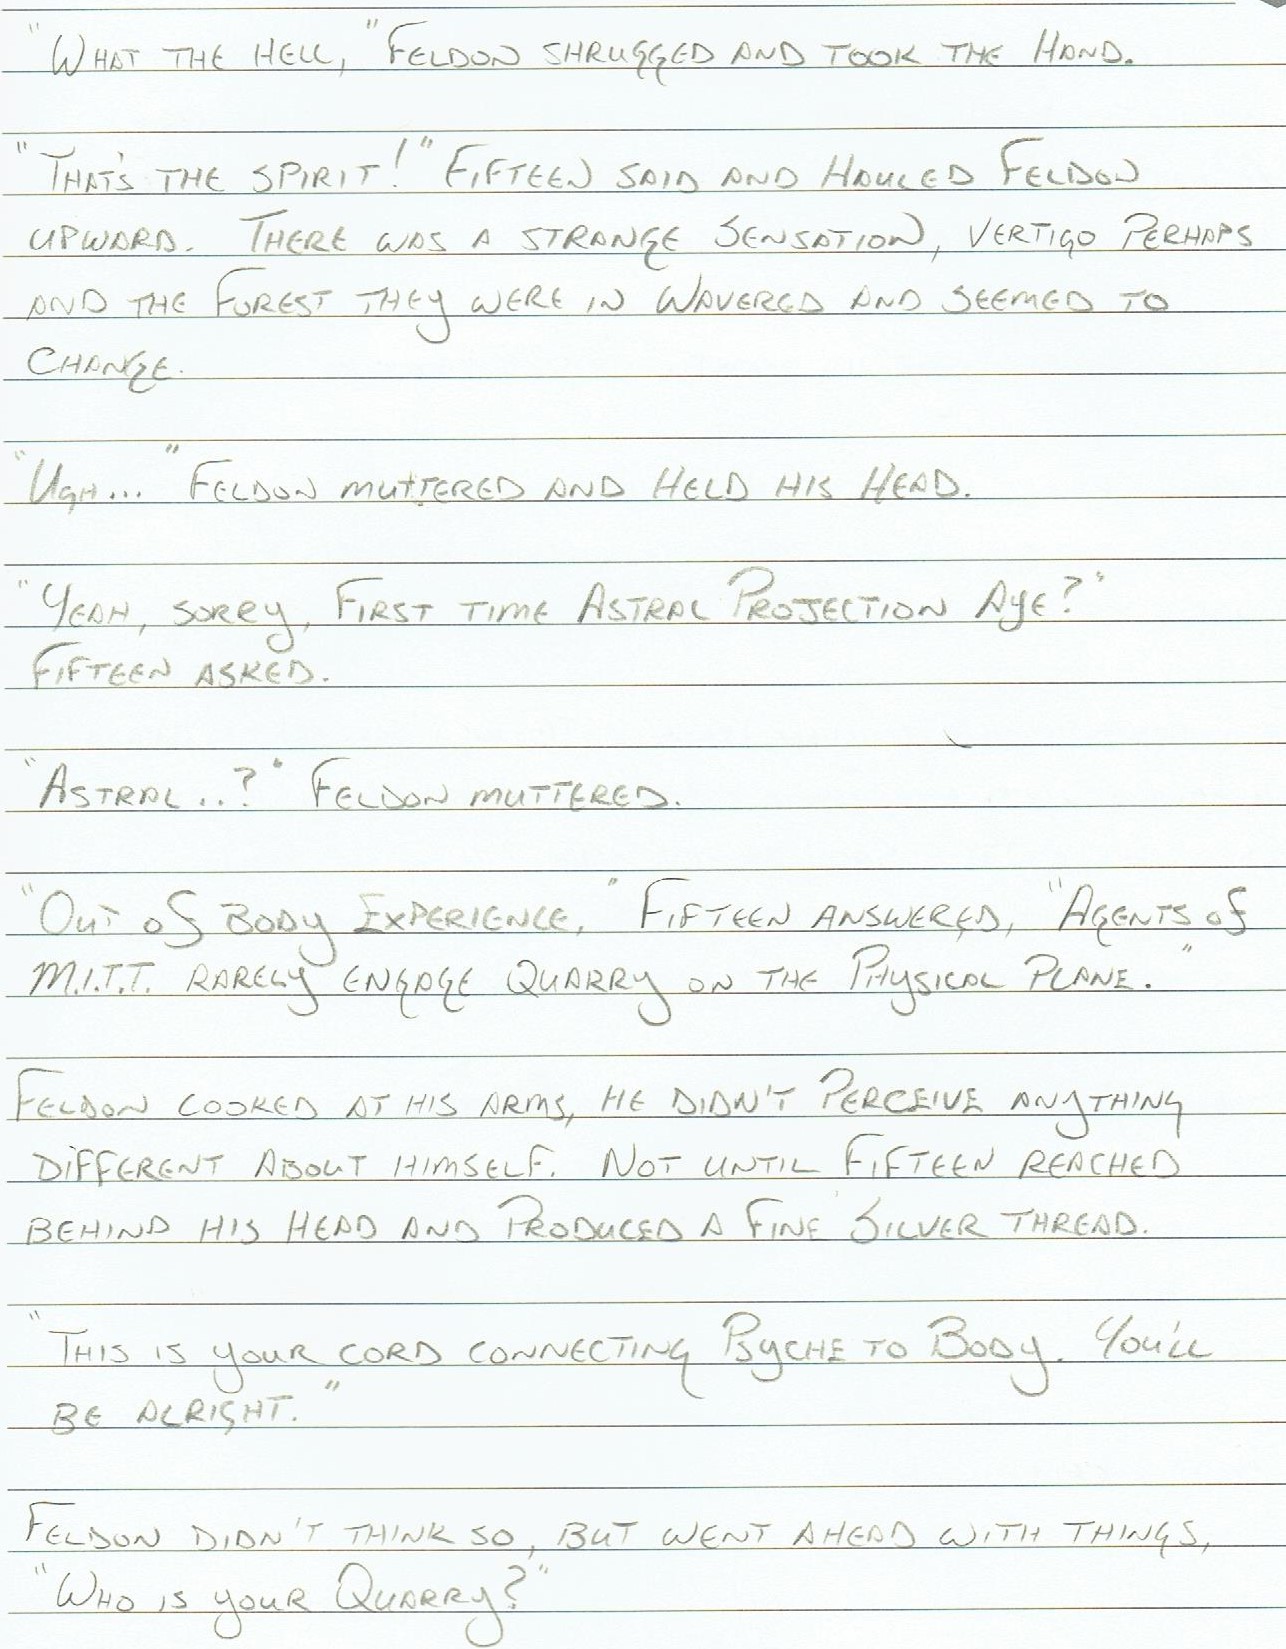 "What the hell," Feldon shrugged and took the hand.
"That's the spirit!" Fifteen said and hauled Feldon
upward. There was a strange sensation, vertigo perhaps
and the forest they were in wavered and seemed to
change.
"Ugh..." Feldon muttered and held his head.
"Yeah, sorry, first time Astral Projection Aye?"
Fifteen asked.
"Astral..?" Feldon muttered.
"Out of Body Experience," Fifteen answered, "Agents of
M.I.T.T. rarely engage quarry on the Physical Plane."
Feldon looked at his arms, he didn't perceive anything
different about himself. Not until Fifteen reached
behind his head and produced a fine silver thread.
"This is your cord connecting Psyche to Body. You'll
be alright."
Feldon didn't think so, but went ahead with things,
"Who is your Quarry?"